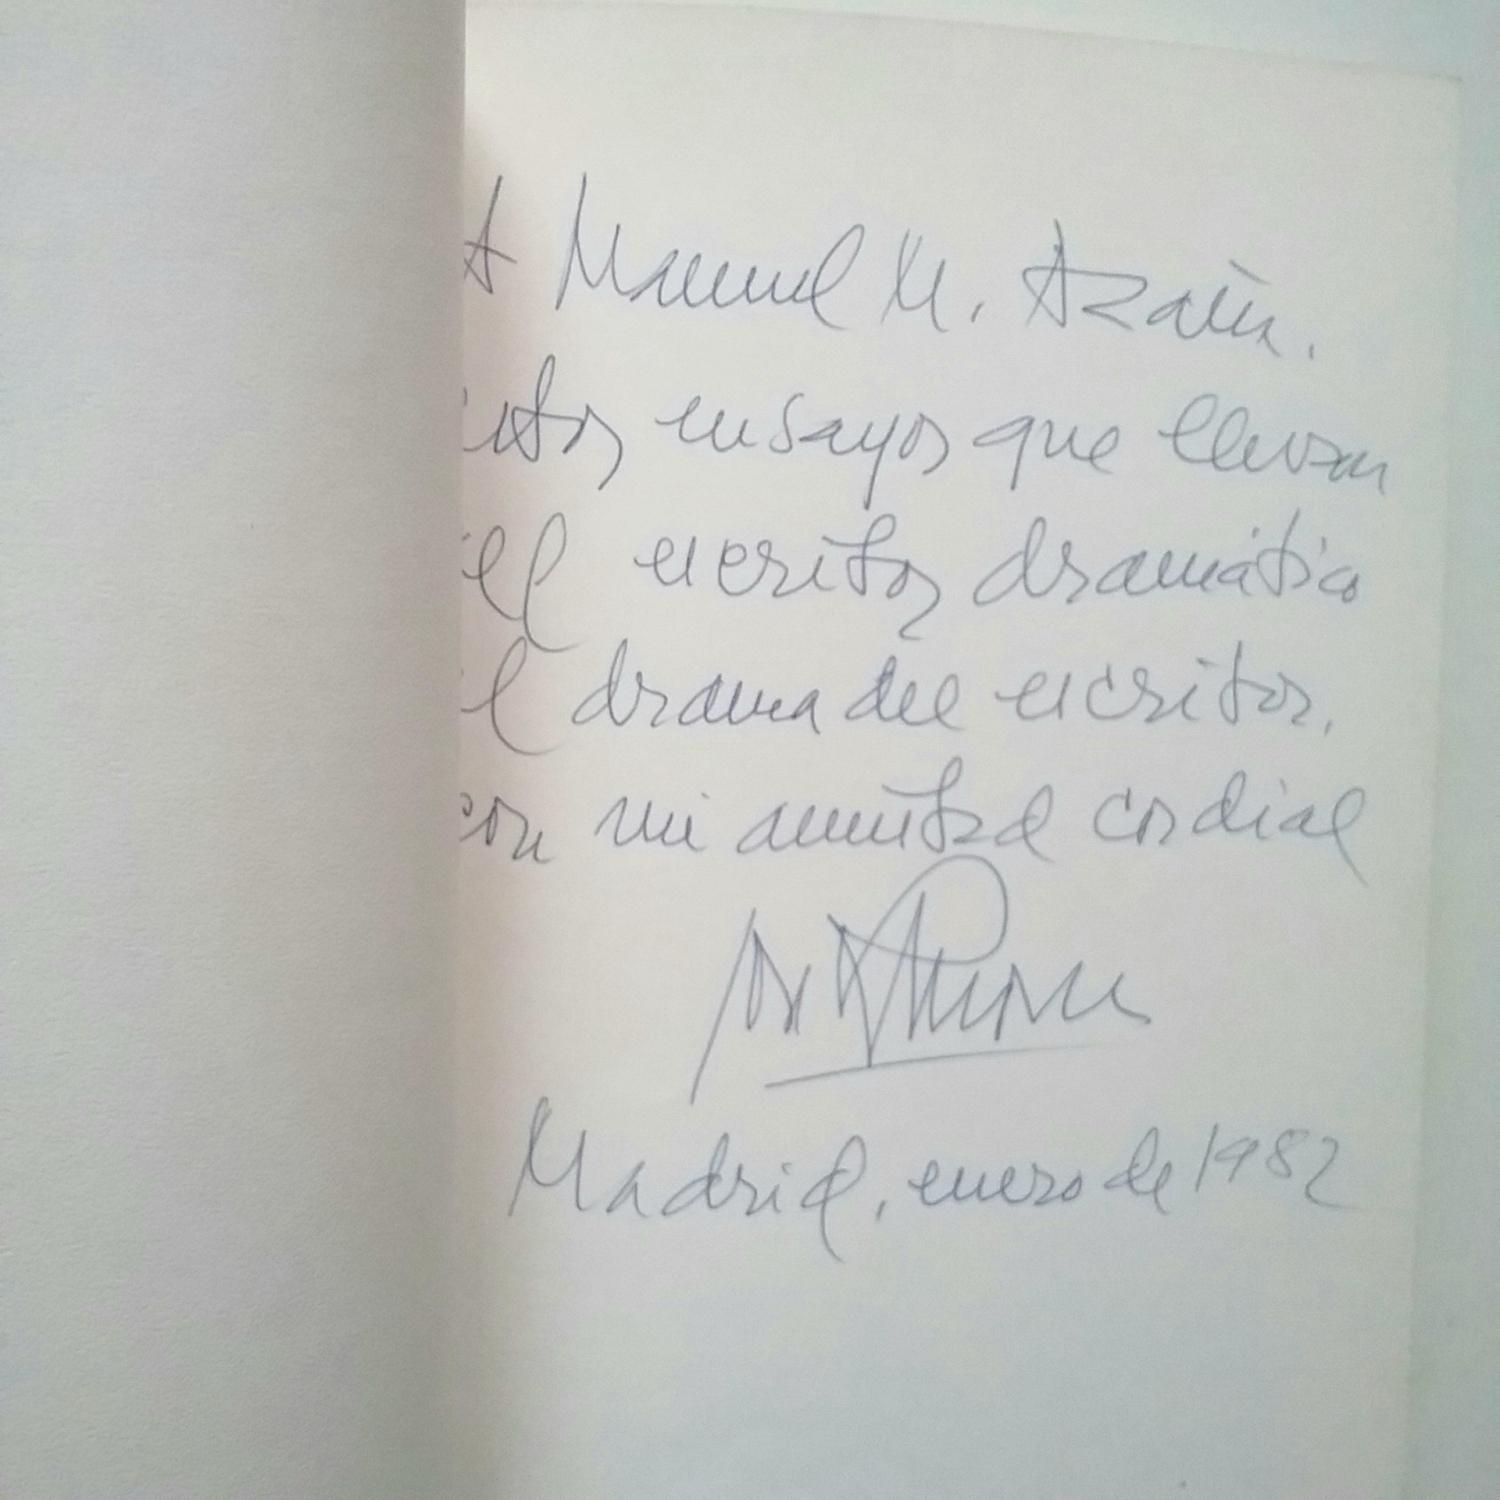 A Manuel M. Azaña.
estos ensayos que llevan
del escritor dramático
al drama del escritor,
con mi amistad cordial
Madrid, enero de 1982